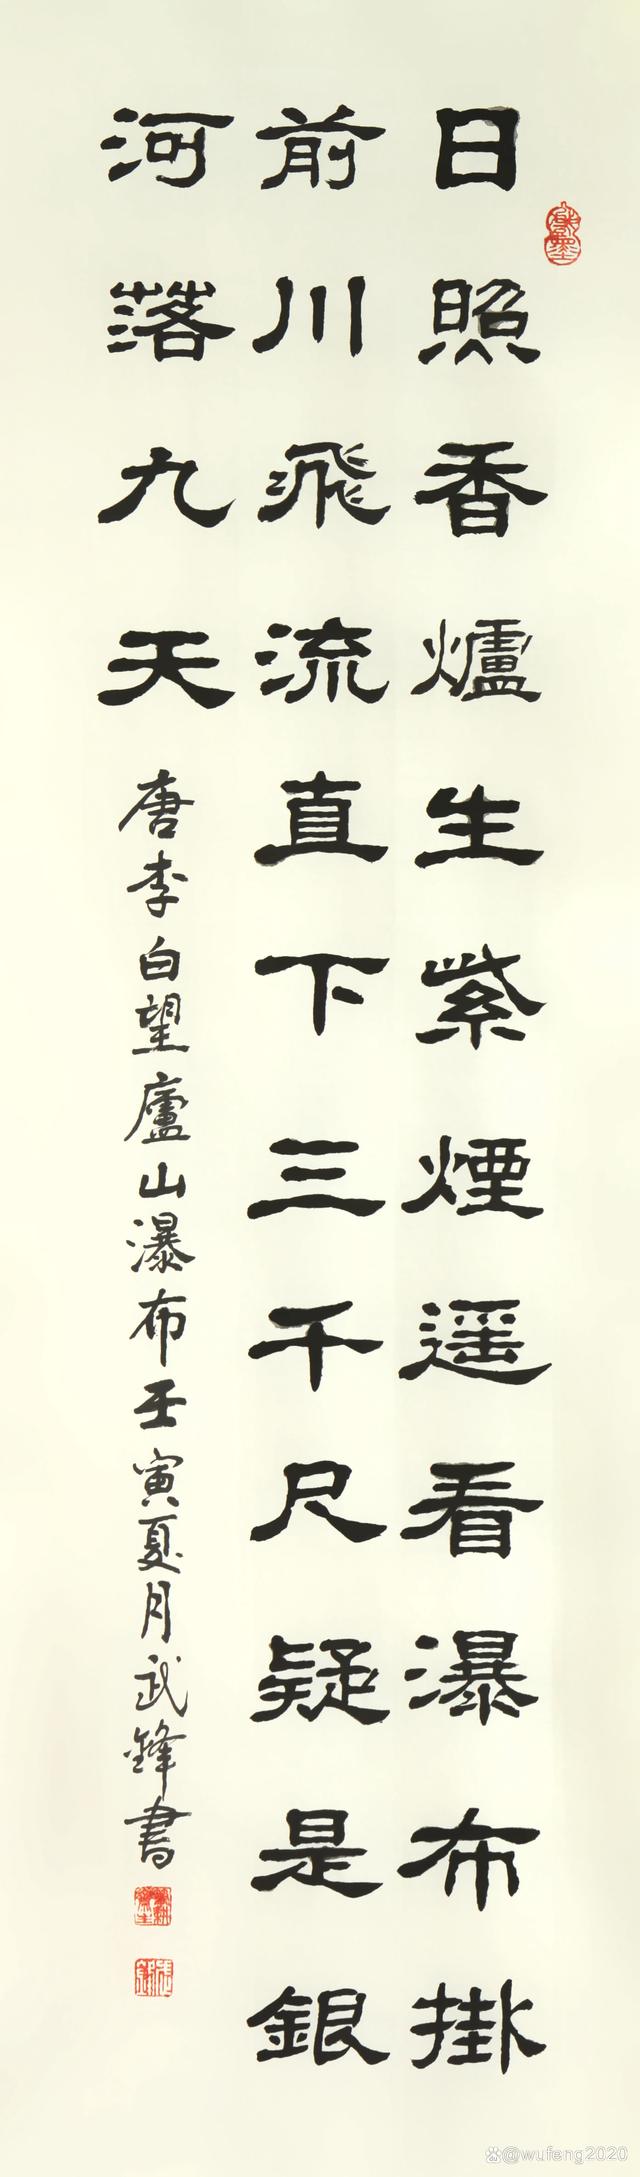 日照香爐生紫煙遥看瀑布掛
前川飛流直下三千尺疑是銀
河落九天
唐李白望廬山瀑布壬寅夏月武鋒書
@wufeng2020